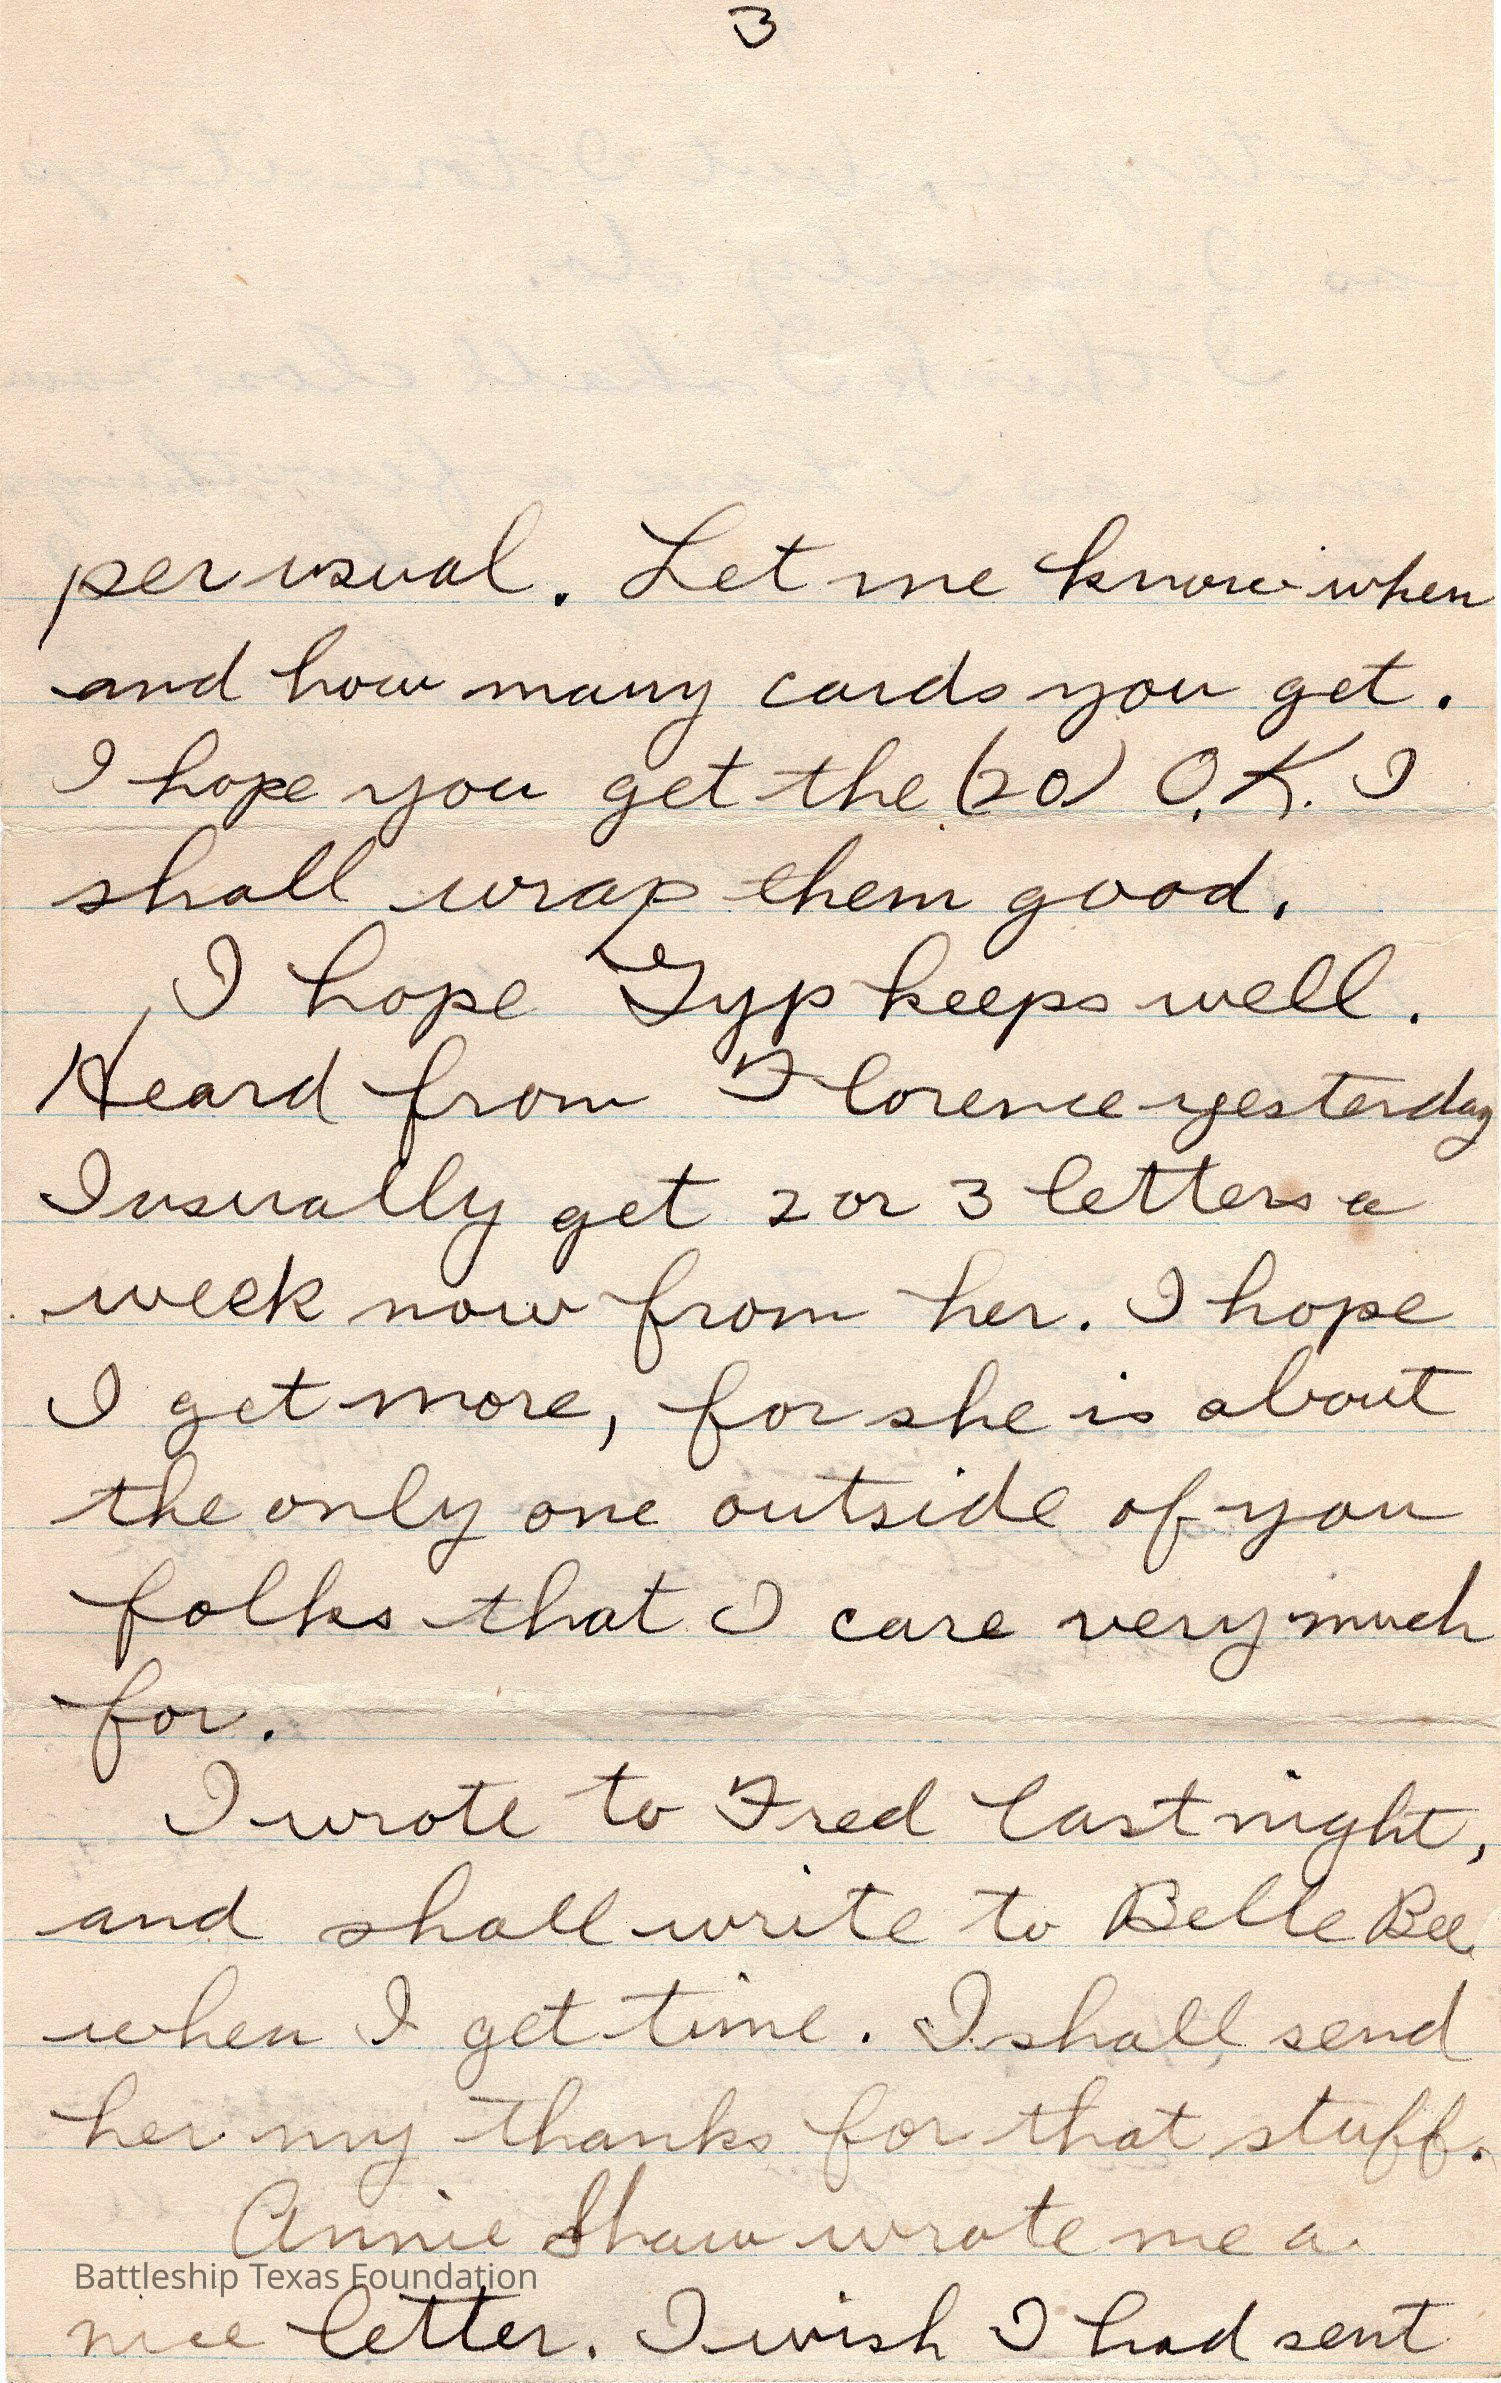 3
per usual. Let me know when
and how many cards you get.
I hope you get the (20) O.K. I
shall wrap them good.
I hope Gyp keeps well.
Heard from Florence yesterday
I usually get 2 or 3 letters a
week now from her. I hope
I get more, for she is about
the only one outside of you
folks that I care very much
for.
I wrote to Fred last night,
and shall write to Belle Bee
when I get time. I shall send
her my thanks for that stuff.
Annie Shaw wrote me a
Battleship Texas Foundation
nice letter. I wish I had sent